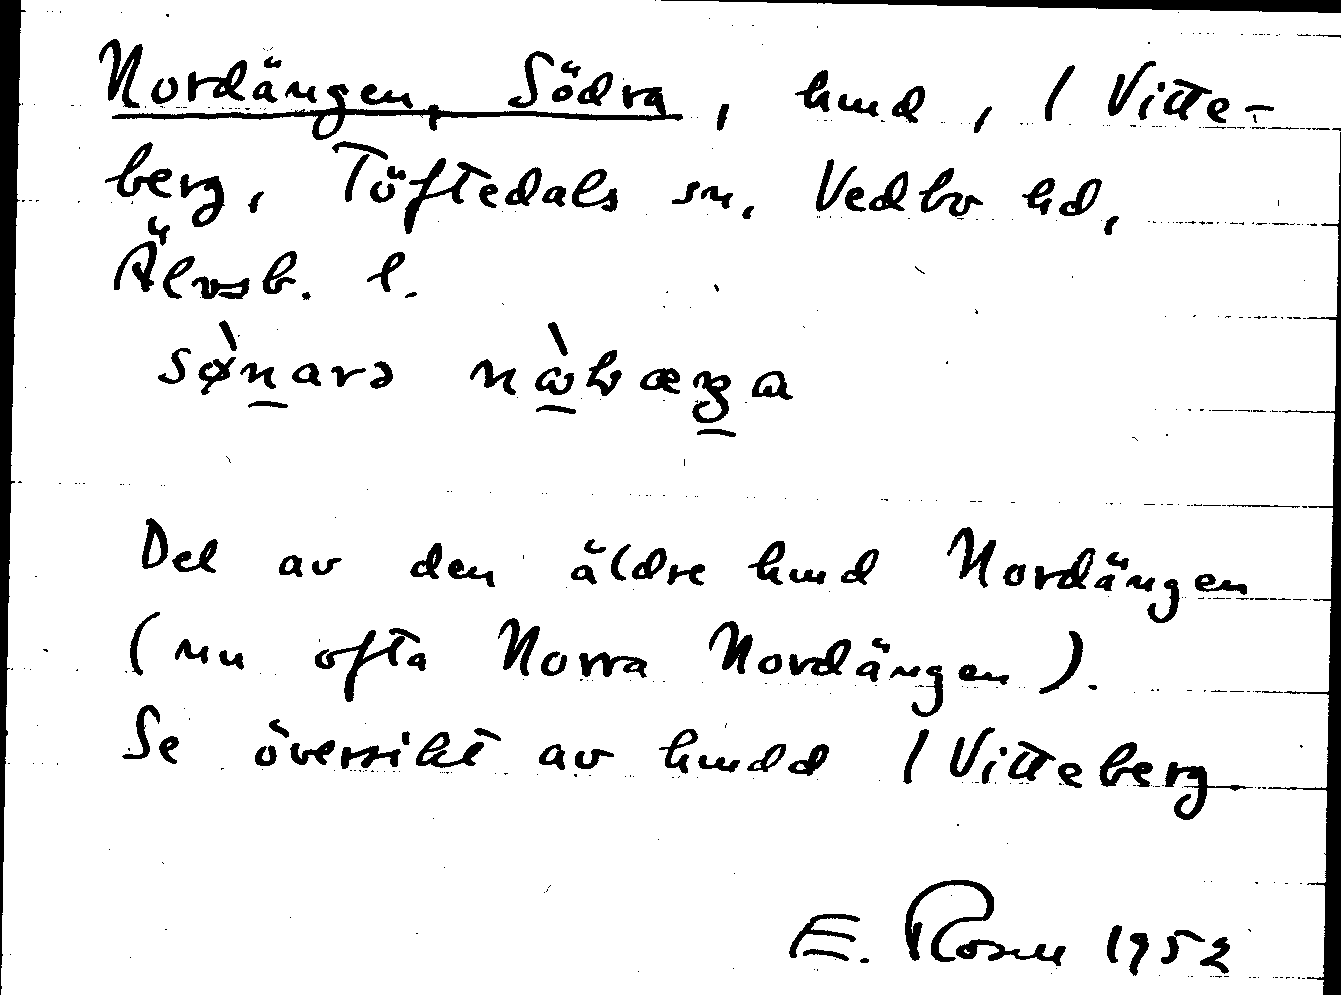 Nordängen, Södra, hmd, / Vitte-
berg, Töftedals sn. Vedbo hd,
Älvsb. l.
Del av den äldre hmd Nordängen
(nu ofta Norra Nordängen).
Se översikt av hmdd / Vitteberg.
E. Rosell 1952